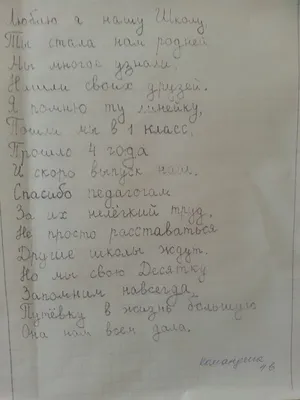 Люблю я нашу Школу
Ты стала нам родней
Мы многое узнали,
Нашли своих друзей.
Я помню ту линейку,
Пошли мы в 1 класс.
Прошло 4 года
И скоро выпуск нам.
Спасибо педагогам
За их нелёгкий труд.
Не просто расставаться
Другие школы ждут.
Но мы свою Десятку
Запомним навсегда,
Путёвку в жизнь большую
Она нам всем дала.